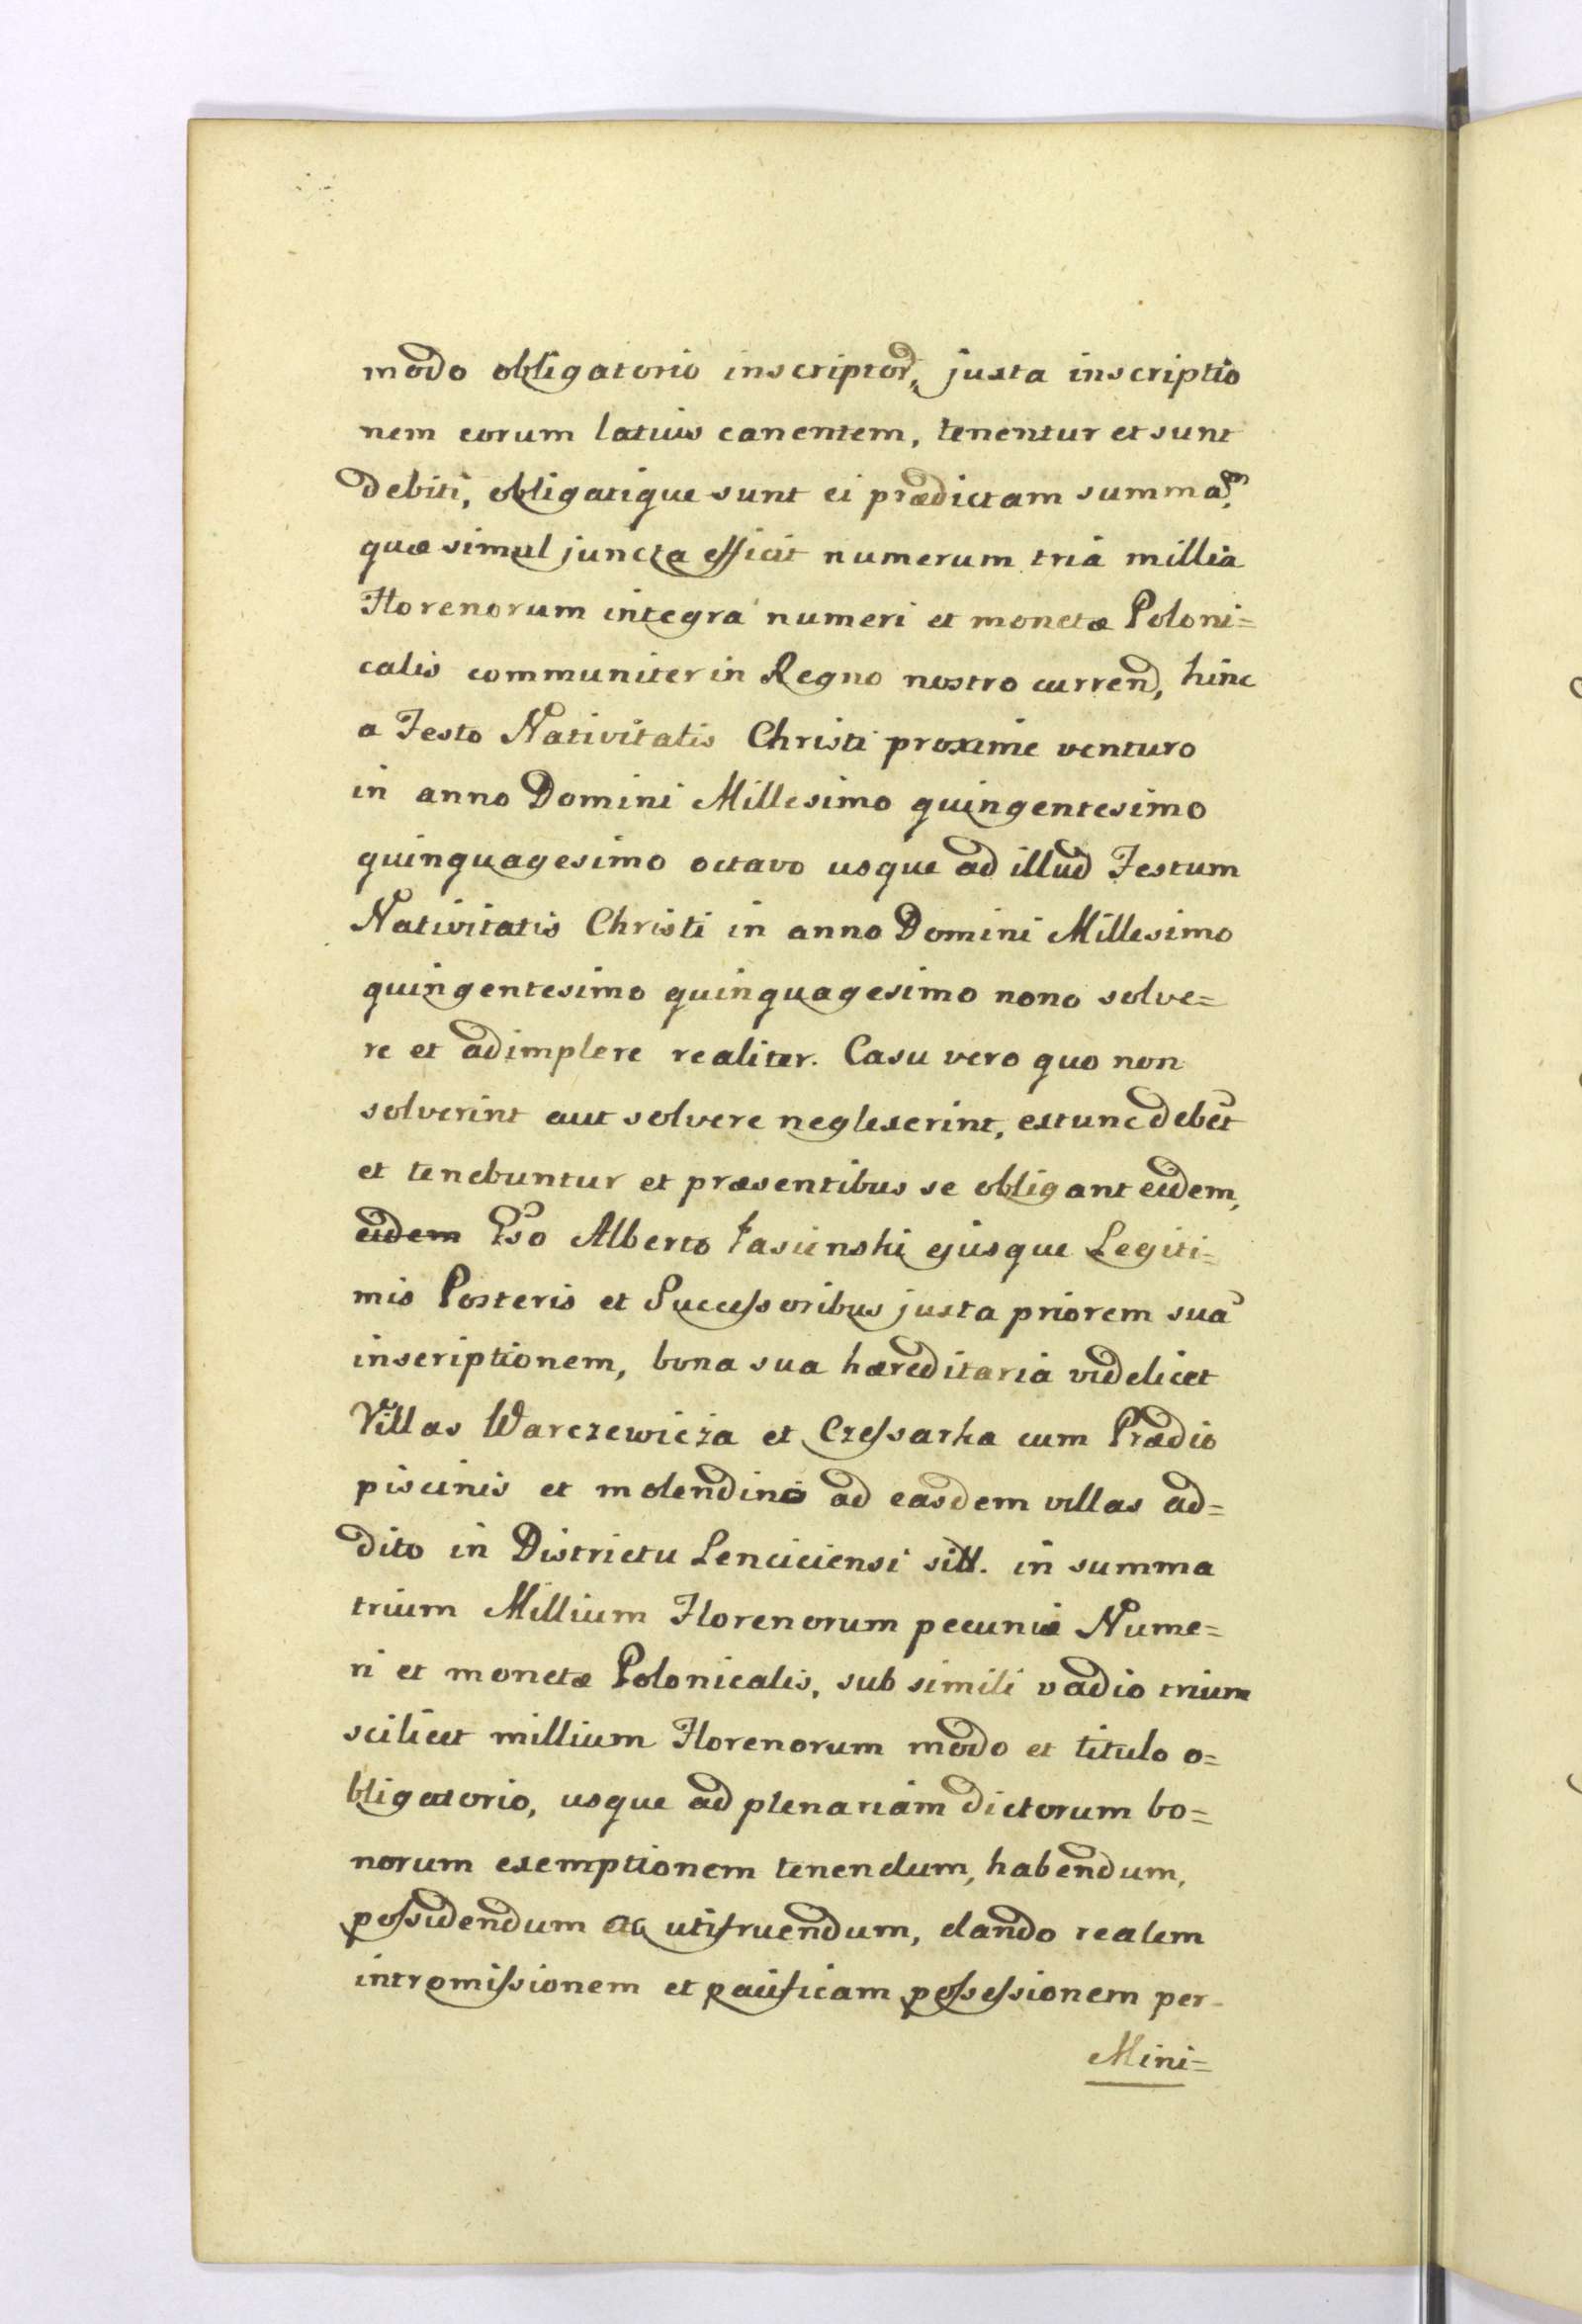 modo obligatorio inscriptor, juxta inscriptio
nem eorum latius canentem, tenentur et sunt
debiti, obligatique sunt ei prædictam summam,
quæ simul juncta efficit numerum tria millia
Florenorum integra numeri et monetæ Poloni=
calis communiter in Regno nostro currend, hinc
a Festo Nativitatis Christi proxime venturo
in anno Domini Millesimo quingentesimo
quinquagesimo octavo usque ad illud Festum
Nativitatis Christi in anno Domini Millesimo
quingentesimo quinquagesimo nono solve=
re et adimplere realiter. Casu vero quo non
solverint aut solvere neglexerint, extunc debet
et tenebuntur et præsentibus se obligant eidem,
eidem Gso Alberto Jasienski ejusque Legiti=
mis Posteris et Successoribus juxta priorem sua
inscriptionem, bona sua hæreditaria videlicet
Villas Warczewicza et Czessarka cum Prædio
piscinis et molendino ad easdem villas ad=
dito in Districtu Lenciciensi sitt. in summa
trium Millium Florenorum pecuniæ Nume=
ri et monetæ Polonicalis, sub simili vadio trium
scilicet millium Florenorum modo et titulo o=
bligatorio, usque ad plenariam dictorum bo=
norum exemptionem tenendum, habendum,
possidendum ac utifruendum, dando realem
intromissionem et pacificam possessionem per-
Mini=